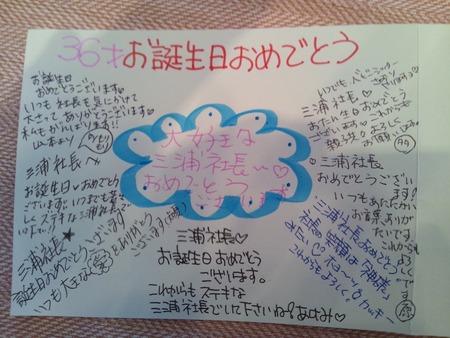 36才お誕生日おめでとう
お誕生日
おめでとうございます。
いつも社長を気にかけて
下さって、ありがとうございます
私もがんばります!!
山本より
大好きな
三浦社長〜♡
おめでとう
ございます
三浦社長へ
お誕生日♡おめでとう
ございます!いつまでも楽
しくステキな三浦社長で
いて下さい!!
三浦社長
お誕生日おめでとうございます
いつも大きな愛をありがとう
ございます
三浦社長♡
お誕生日おめでとう
ございます。
これからもステキな
三浦社長でいて下さいね!あゆみ♡
いつもベビーシッター
三浦社長♡
お誕生日おめでとう
ございます。これからも
よろしく
お願いします
三浦社長
おめでとうござい
ます!
いつもあたたかい
お言葉ありが
たいです。
これからもよろしくです
三浦社長おめでとうございます
社長の笑顔は「神様」
みたい♡
これからもよろしく!